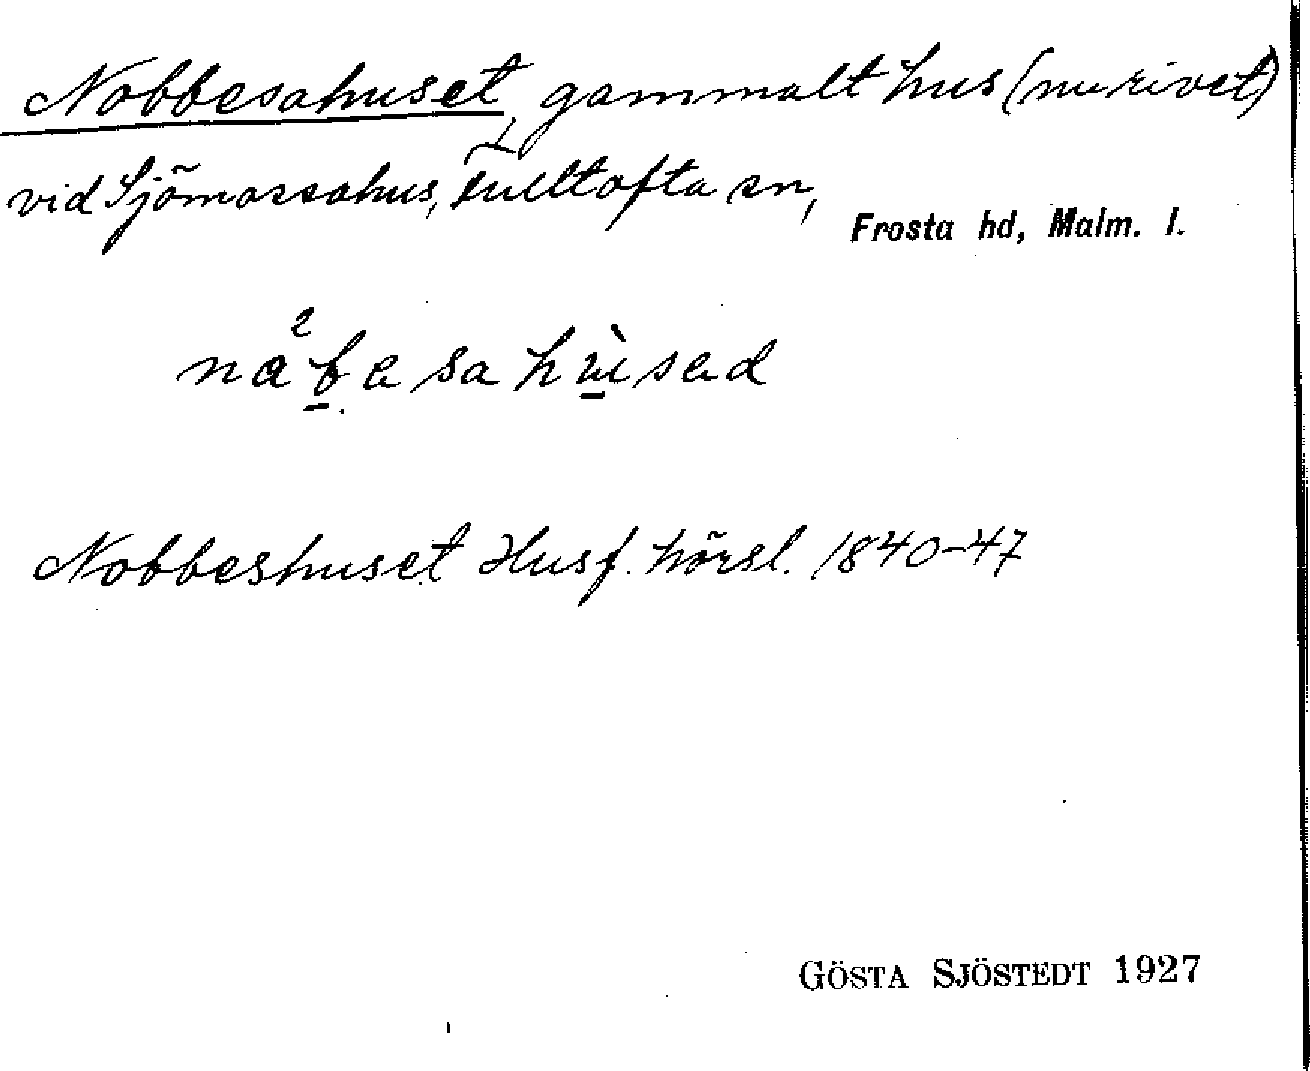 Nobbesahuset, gammalt hus (nu rivet)
vid Sjömossahus, Fulltofta sn, Frosta hd, Malm. l.
nå²besa hùsed
Nobbeshuset Husf. hörsl. 1840-47
GÖSTA SJÖSTEDT 1927